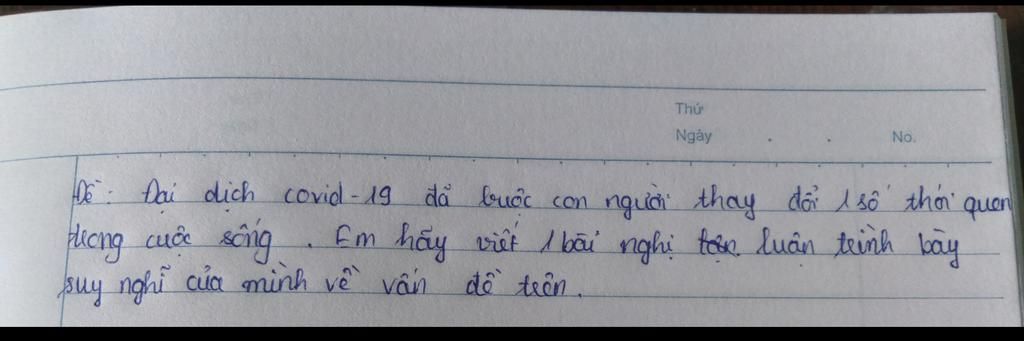 Thứ
Ngày . . No.
Đề: Đại dịch covid-19 đã buộc con người thay đổi 1 số thói quen
trong cuộc sống. Em hãy viết 1 bài nghị luận trình bày
suy nghĩ của mình về vấn đề trên.